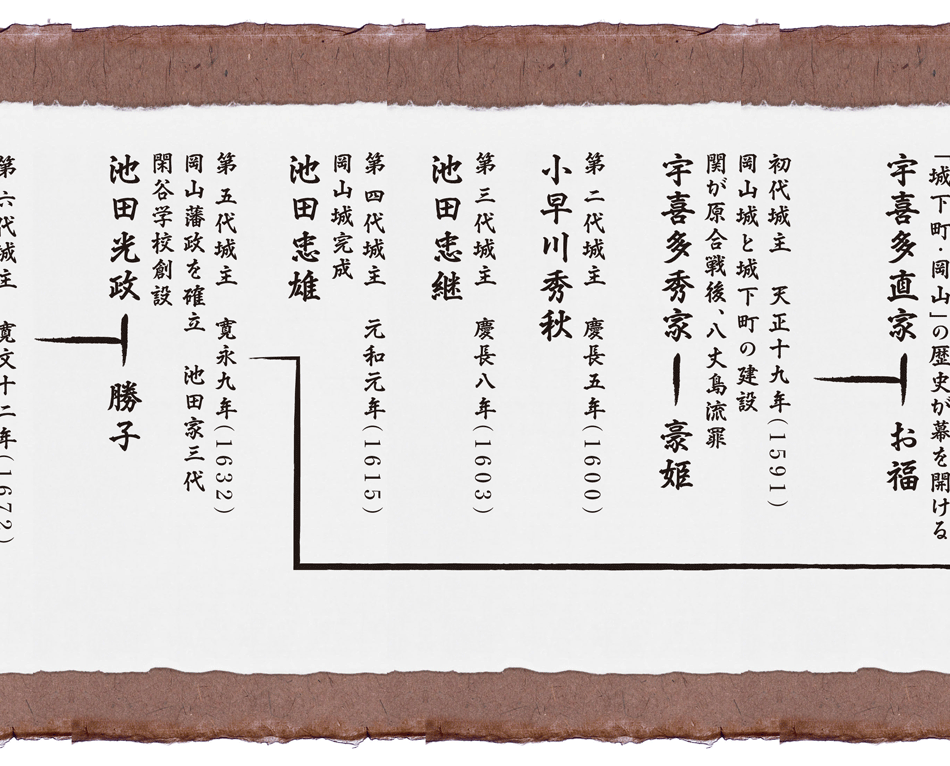 「城下町・岡山」の歴史が幕を開ける
宇喜多直家 お福
初代城主 天正十九年(1591)
岡山城と城下町の建設
関が原合戦後、八丈島流罪
宇喜多秀家 豪姫
第二代城主 慶長五年(1600)
小早川秀秋
第三代城主 慶長八年(1603)
池田忠継
第四代城主 元和元年(1615)
岡山城完成
池田忠雄
第五代城主 寛永九年(1632)
岡山藩政を確立 池田家三代
閑谷学校創設
池田光政 勝子
第六代城主 寛文十二年(1672)